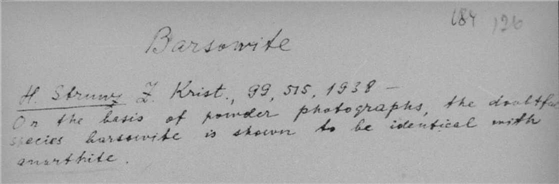 184 126
Barsowite
H. Strunz Z. Krist., 99, 515, 1938 —
On the basis of powder photographs, the doubtful
species barsowite is shown to be identical with
anorthite.